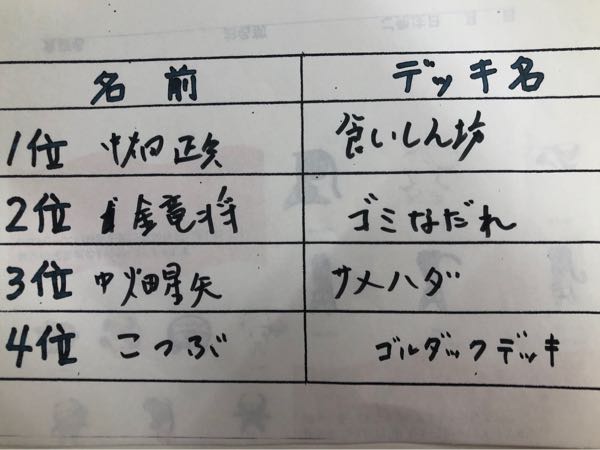 名前 デッキ名
1位 中畑正矢 食いしん坊
2位 金竜将 ゴミなだれ
3位 中畑星矢 サメハダ
4位 こつぶ ゴルダックデッキ